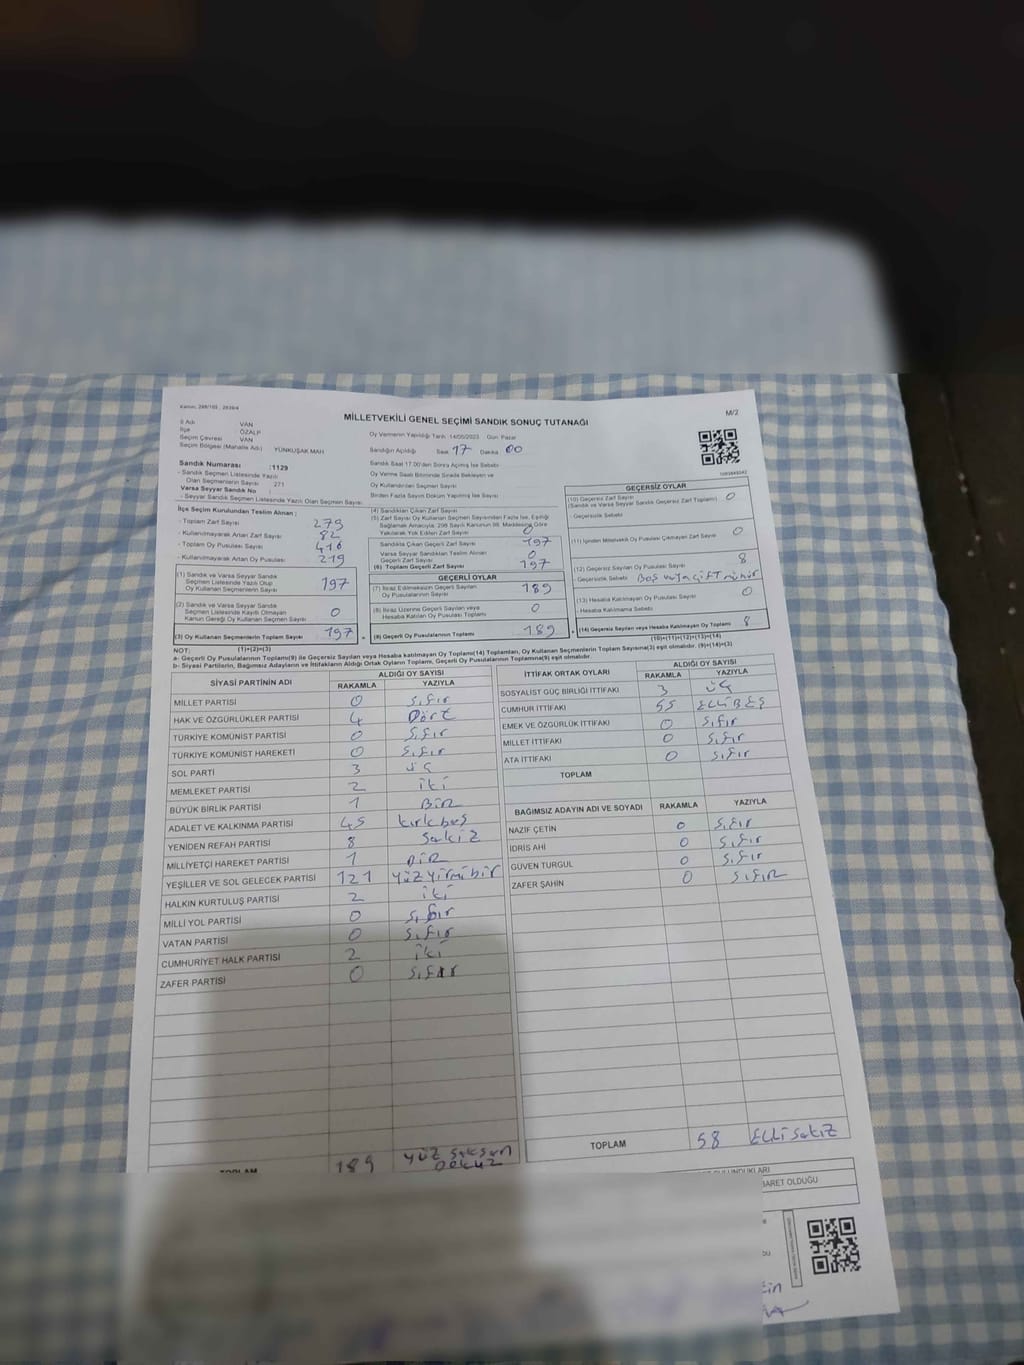 MİLLETVEKİLİ GENEL SEÇİMİ SANDIK SONUÇ TUTANAĞI
M/2
İl Adı VAN
İlçe ÖZALP
Seçim Çevresi VAN
Seçim Bölgesi (Mahalle Adı) YÜNKUŞAK MAH
Oy Vermenin Yapıldığı Tarih 14/05/2023 Gün: Pazar
Sandığın Açıldığı Saat 17 Dakika 00
Sandık Saat 17.00'den Sonra Açılmış İse Sebebi
Oy Verme Saati Bitiminde Sırada Bekleyen ve
Oy Kullandırılan Seçmen Sayısı
Birden Fazla Sayım Döküm Yapılmış İse Sayısı
Sandık Numarası :1129
- Sandık Seçmen Listesinde Yazılı
Olan Seçmenlerin Sayısı 271
Varsa Seyyar Sandık No :
- Seyyar Sandık Seçmen Listesinde Yazılı Olan Seçmen Sayısı
İlçe Seçim Kurulundan Teslim Alınan ;
- Toplam Zarf Sayısı 279
- Kullanılmayarak Artan Zarf Sayısı 82
- Toplam Oy Pusulası Sayısı 416
- Kullanılmayarak Artan Oy Pusulası 219
(1) Sandık ve Varsa Seyyar Sandık
Seçmen Listesinde Yazılı Olup
Oy Kullanan Seçmenlerin Sayısı 197
(2) Sandık ve Varsa Seyyar Sandık
Seçmen Listesinde Kayıtlı Olmayan
Kanun Gereği Oy Kullanan Seçmen Sayısı 0
(3) Oy Kullanan Seçmenlerin Toplam Sayısı 197
(1)+(2)=(3)
(4) Sandıktan Çıkan Zarf Sayısı
(5) Zarf Sayısı Oy Kullanan Seçmen Sayısından Fazla İse, Eşitliği
Sağlamak Amacıyla; 298 Sayılı Kanunun 98. Maddesine Göre
Yakılarak Yok Edilen Zarf Sayısı 0
Sandıkta Çıkan Geçerli Zarf Sayısı 197
Varsa Seyyar Sandıktan Teslim Alınan
Geçerli Zarf Sayısı 0
(6) Toplam Geçerli Zarf Sayısı 197
GEÇERLİ OYLAR
(7) İtiraz Edilmeksizin Geçerli Sayılan
Oy Pusulasının Sayısı 189
(8) İtiraz Üzerine Geçerli Sayılan veya
Hesaba Katılan Oy Pusulası Sayısı 0
(9) Geçerli Oy Pusulalarının Toplamı 189
GEÇERSİZ OYLAR
(10) Geçersiz Zarf Sayısı
(Sandık ve Varsa Seyyar Sandık Geçersiz Zarf Toplamı) 0
- Geçersizlik Sebebi
(11) İçinden Milletvek. Oy Pusulası Çıkmayan Zarf Sayısı 0
(12) Geçersiz Sayılan Oy Pusulası Sayısı 8
- Geçersizlik Sebebi Boş veya çift mühür
(13) Hesaba Katılmayan Oy Pusulası Sayısı 0
- Hesaba Katılmama Sebebi
(14) Geçersiz Sayılan veya Hesaba Katılmayan Oy Toplamı 8
(10)+(11)+(12)+(13)=(14)
NOT:
a- Geçerli Oy Pusulalarının Toplamı(9) ile Geçersiz Sayılan veya Hesaba katılmayan Oy Toplamı(14) Toplamları, Oy Kullanan Seçmenlerin Toplam Sayısına(3) eşit olmalıdır. (9)+(14)=(3)
b- Siyasi Partilerin, Bağımsız Adayların ve İttifakların Aldığı Ortak Oyların Toplamı, Geçerli Oy Pusulalarının Toplamına(9) eşit olmalıdır.
SİYASİ PARTİNİN ADI ALDIĞI OY SAYISI
RAKAMLA YAZIYLA
MİLLET PARTİSİ 0 sıfır
HAK VE ÖZGÜRLÜKLER PARTİSİ 4 Dört
TÜRKİYE KOMÜNİST PARTİSİ 0 sıfır
TÜRKİYE KOMÜNİST HAREKETİ 0 sıfır
SOL PARTİ 3 üç
MEMLEKET PARTİSİ 2 iki
BÜYÜK BİRLİK PARTİSİ 1 Bir
ADALET VE KALKINMA PARTİSİ 45 kırkbeş
YENİDEN REFAH PARTİSİ 8 Sekiz
MİLLİYETÇİ HAREKET PARTİSİ 1 BİR
YEŞİLLER VE SOL GELECEK PARTİSİ 121 yüzyirmibir
HALKIN KURTULUŞ PARTİSİ 2 iki
MİLLİ YOL PARTİSİ 0 sıfır
VATAN PARTİSİ 0 sıfır
CUMHURİYET HALK PARTİSİ 2 iki
ZAFER PARTİSİ 0 sıfır
TOPLAM 189 yüz seksen dokuz
İTTİFAK ORTAK OYLARI ALDIĞI OY SAYISI
RAKAMLA YAZIYLA
SOSYALİST GÜÇ BİRLİĞİ İTTİFAKI 3 üç
CUMHUR İTTİFAKI 55 ELLİBEŞ
EMEK VE ÖZGÜRLÜK İTTİFAKI 0 sıfır
MİLLET İTTİFAKI 0 sıfır
ATA İTTİFAKI 0 sıfır
TOPLAM
BAĞIMSIZ ADAYIN ADI VE SOYADI RAKAMLA YAZIYLA
NAZİF ÇETİN 0 sıfır
İDRİS AHİ 0 sıfır
GÜVEN TURGUL 0 sıfır
ZAFER ŞAHİN 0 sıfır
TOPLAM 58 Elli sekiz
BARET OLDUĞU